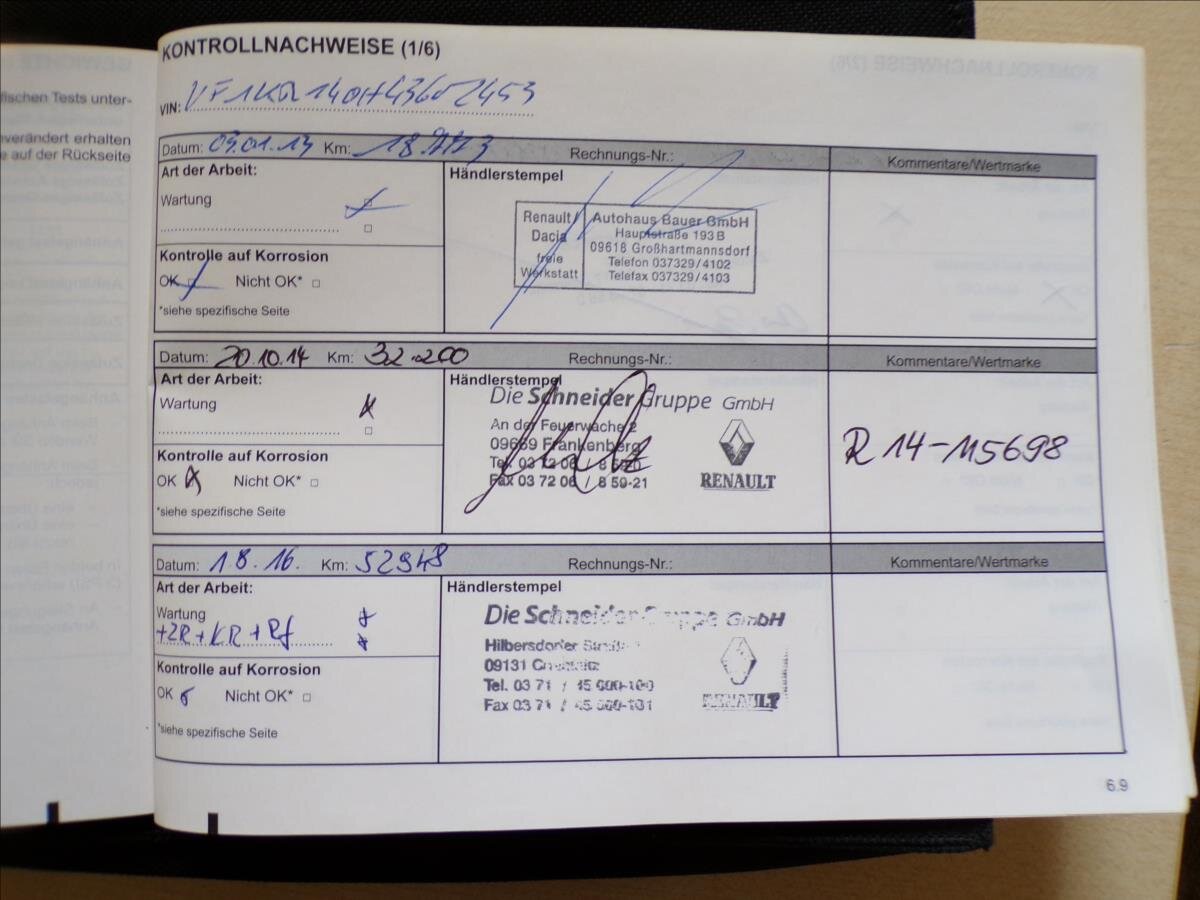 fischen Tests unter-
verändert erhalten
e auf der Rückseite
KONTROLLNACHWEISE (1/6)
VIN:
Datum: 03.01.13 Km: Rechnungs-Nr.: Kommentare/Wertmarke
Art der Arbeit:
Händlerstempel
Wartung
Renault
Dacia
freie
Werkstatt
Autohaus Bauer GmbH
Hauptstraße 193 B
09618 Großhartmannsdorf
Telefon 037329/4102
Telefax 037329/4103
Kontrolle auf Korrosion
OK Nicht OK*
*siehe spezifische Seite
Datum: 20.10.14 Km: 32.200 Rechnungs-Nr.: Kommentare/Wertmarke
Art der Arbeit:
Händlerstempel
Wartung
Die Schneider Gruppe GmbH
An der Feuerwache 2
09669 Frankenberg
Tel. 03 72 06 / 8 59-0
Fax 03 72 06 / 8 59-21
RENAULT
R 14-115698
Kontrolle auf Korrosion
OK Nicht OK*
*siehe spezifische Seite
Datum: 1.8.16. Km: 52948 Rechnungs-Nr.: Kommentare/Wertmarke
Art der Arbeit:
Händlerstempel
Wartung
+ZR+KR+Rf
Die Schneider Gruppe GmbH
Hilbersdorfer
09131 Chemnitz
Tel. 03 71 /
Fax 03 71 /
RENAULT
Kontrolle auf Korrosion
OK Nicht OK*
*siehe spezifische Seite
6.9